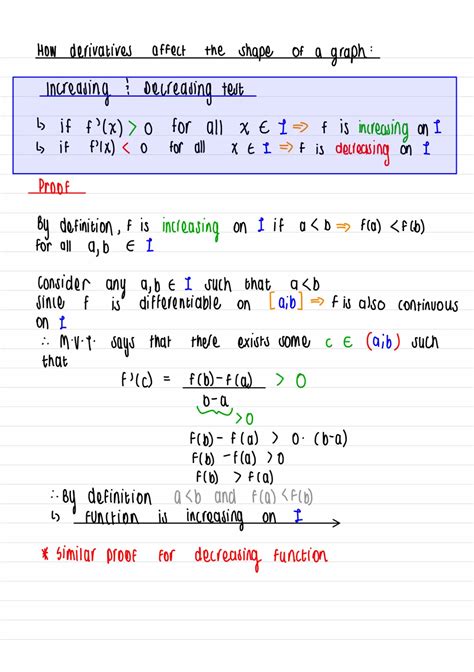 How derivatives affect the shape of a graph:
Increasing & Decreasing test
↳ if f'(x) > 0 for all x ∈ I ⇒ f is increasing on I
↳ if f'(x) < 0 for all x ∈ I ⇒ f is decreasing on I
Proof
By definition, f is increasing on I if a < b ⇒ f(a) < f(b)
for all a,b ∈ I
Consider any a,b ∈ I such that a<b
since f is differentiable on [a,b] ⇒ f is also continuous
on I
∴ M.V.T. says that there exists some c ∈ (a,b) such
that
f'(c) = f(b)-f(a) > 0
b-a
>0
f(b) - f(a) > 0·(b-a)
f(b) - f(a) > 0
f(b) > f(a)
∴ By definition a<b and f(a) < f(b)
↳ function is increasing on I
* Similar proof for decreasing function